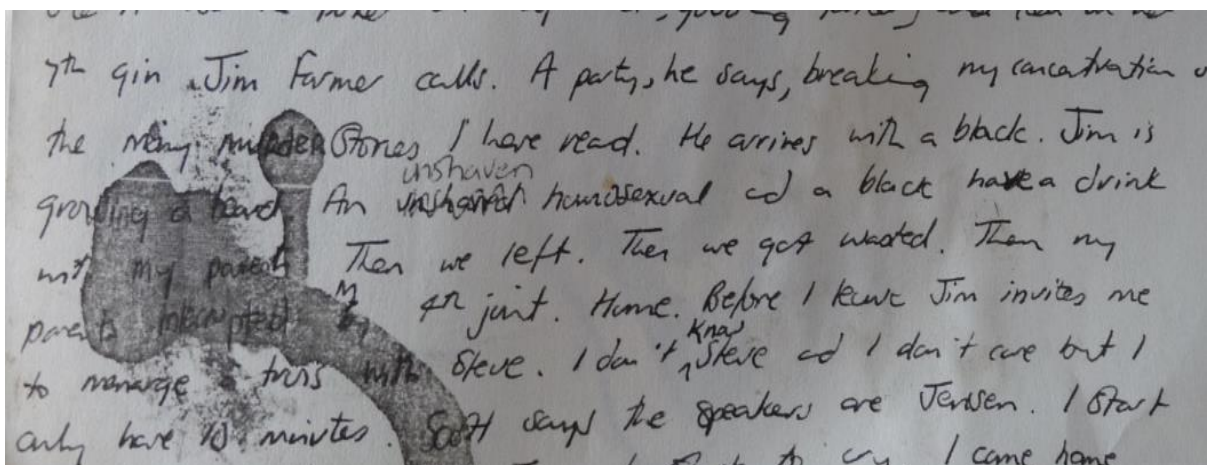 7th gin Jim Farmer calls. A party, he says, breaking my concentration
the many murder Stories I have read. He arrives with a black. Jim is
unshaven
growing a beard An homosexual ad a black have a drink
with my parents Then we left. Then we got wasted. Then my
parents interrupted my 4th joint. Home. Before I leave Jim invites me
know
to menarge a trois with Steve. I don't Steve ad I don't care but I
only have 10 minutes. Scott says the speakers are Jensen. I start
to cry I came home